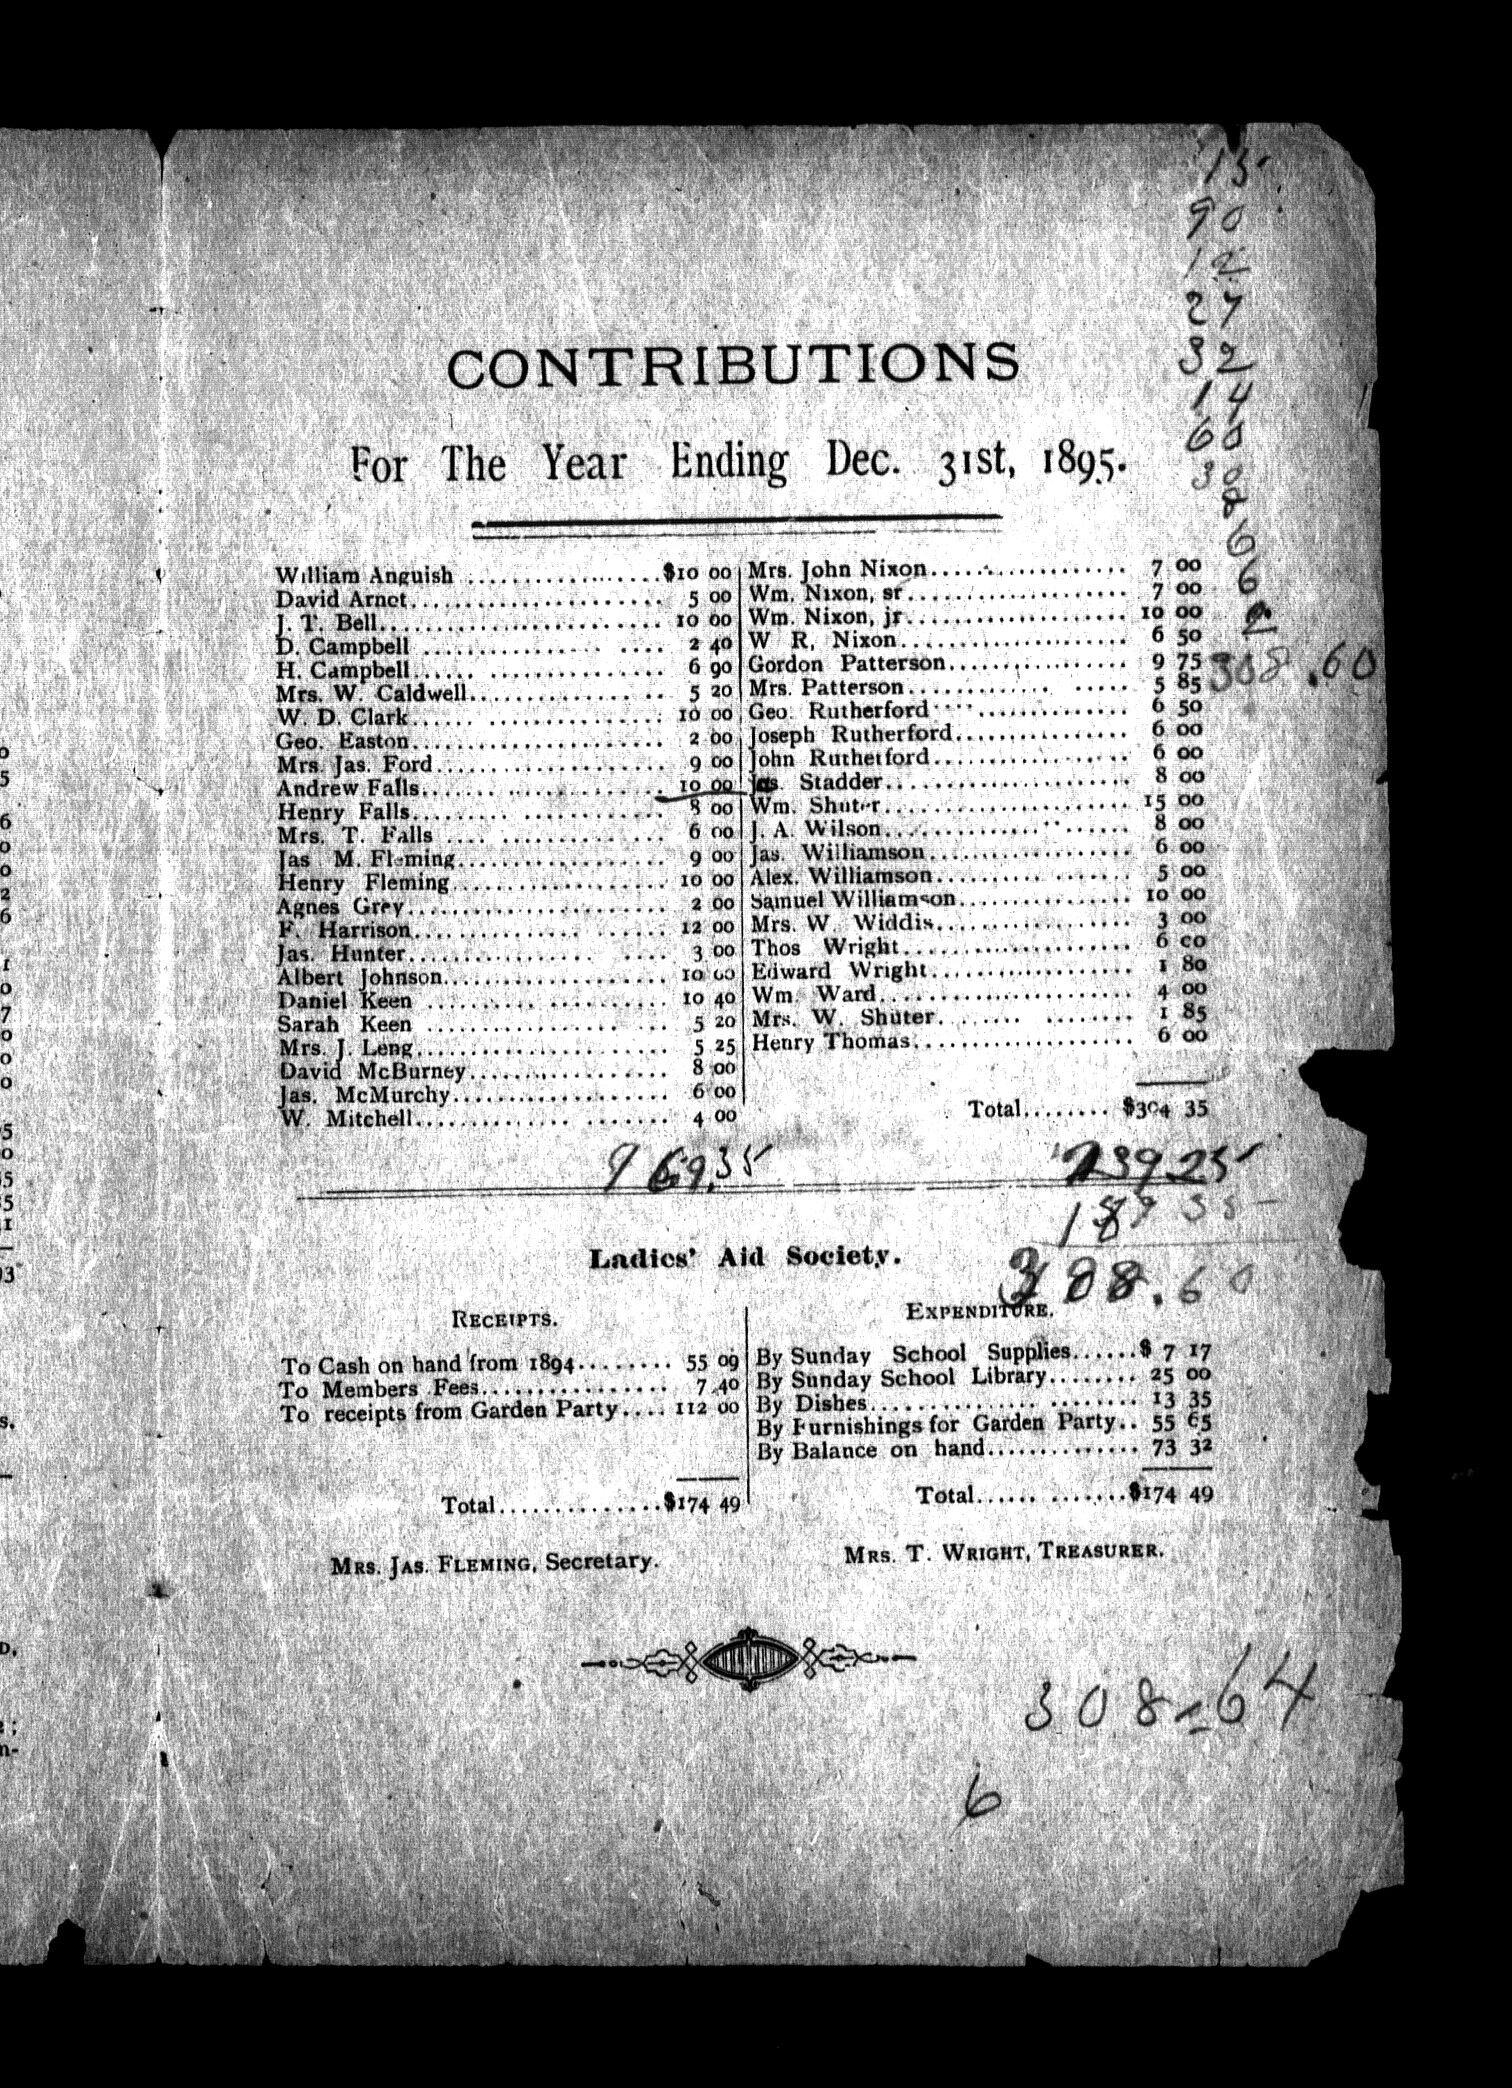 CONTRIBUTIONS
For The Year Ending Dec. 31st, 1895.
William Anguish $10 00
David Arnot 5 00
J. T. Bell 10 00
D. Campbell 2 40
H. Campbell 6 90
Mrs. W. Caldwell 5 20
W. D. Clark 10 00
Geo. Easton 2 00
Mrs. Jas. Ford 9 00
Andrew Falls 10 00
Henry Falls 8 00
Mrs. T. Falls 6 00
Jas M. Fleming 9 00
Henry Fleming 10 00
Agnes Grey 2 00
F. Harrison 12 00
Jas. Hunter 3 00
Albert Johnson 10 00
Daniel Keen 10 40
Sarah Keen 5 20
Mrs. J. Leng 5 25
David McBurney 8 00
Jas. McMurchy 6 00
W. Mitchell 4 00
Mrs. John Nixon 7 00
Wm. Nixon, sr 7 00
Wm. Nixon, jr 10 00
W R. Nixon 6 50
Gordon Patterson 9 75
Mrs. Patterson 5 85
Geo. Rutherford 6 50
Joseph Rutherford 6 00
John Rutherford 6 00
Jas. Stadder 8 00
Wm. Shuter 15 00
J. A. Wilson 8 00
Jas. Williamson 6 00
Alex. Williamson 5 00
Samuel Williamson 10 00
Mrs. W. Widdis 3 00
Thos Wright 6 00
Edward Wright 1 80
Wm. Ward 4 00
Mrs. W. Shuter 1 85
Henry Thomas 6 00
Total $304 35
15
90
12
27
32
14
60
30
6
6
308.60
139 25
308.60
Ladies' Aid Society.
RECEIPTS.
To Cash on hand from 1894 55 09
To Members Fees 7 40
To receipts from Garden Party 112 00
Total $174 49
MRS. JAS. FLEMING, Secretary.
EXPENDITURE.
By Sunday School Supplies $ 7 17
By Sunday School Library 25 00
By Dishes 13 35
By Furnishings for Garden Party 55 65
By Balance on hand 73 32
Total $174 49
MRS. T. WRIGHT, TREASURER.
308.64
6